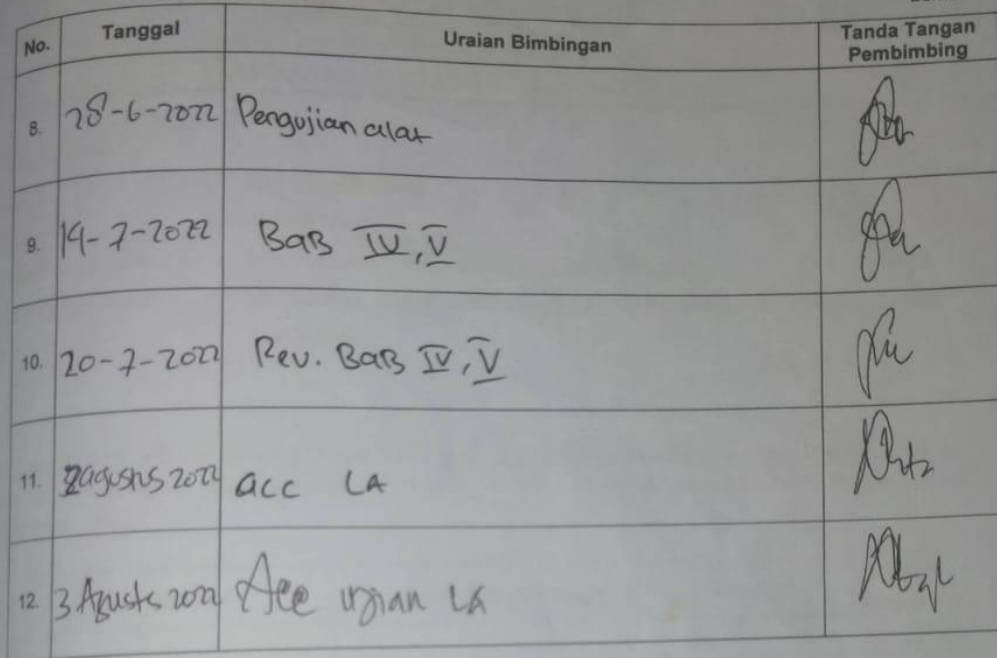 No. Tanggal Uraian Bimbingan Tanda Tangan
Pembimbing
8. 28-6-2022 Pengujian alat
9. 14-7-2022 BaB IV, V
10. 20-7-2022 Rev. BaB IV, V
11. 2 agustus 2022 acc LA
12. 3 Agusts 2022 Acc ujian LA